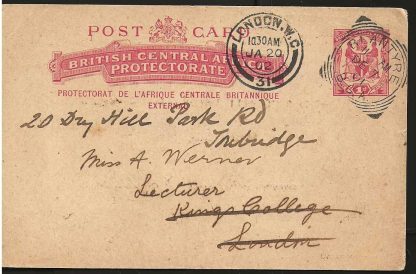 POST CARD
BRITISH CENTRAL AF
PROTECTORATE
PROTECTORAT DE L'AFRIQUE CENTRALE BRITANNIQUE
EXTERIEUR
LONDON. W.C
10.30AM
JA 20
02
31
BLANTYRE
20 Dry Hill Park Rd
Tonbridge
Miss A. Werner
Lecturer
Kings College
London